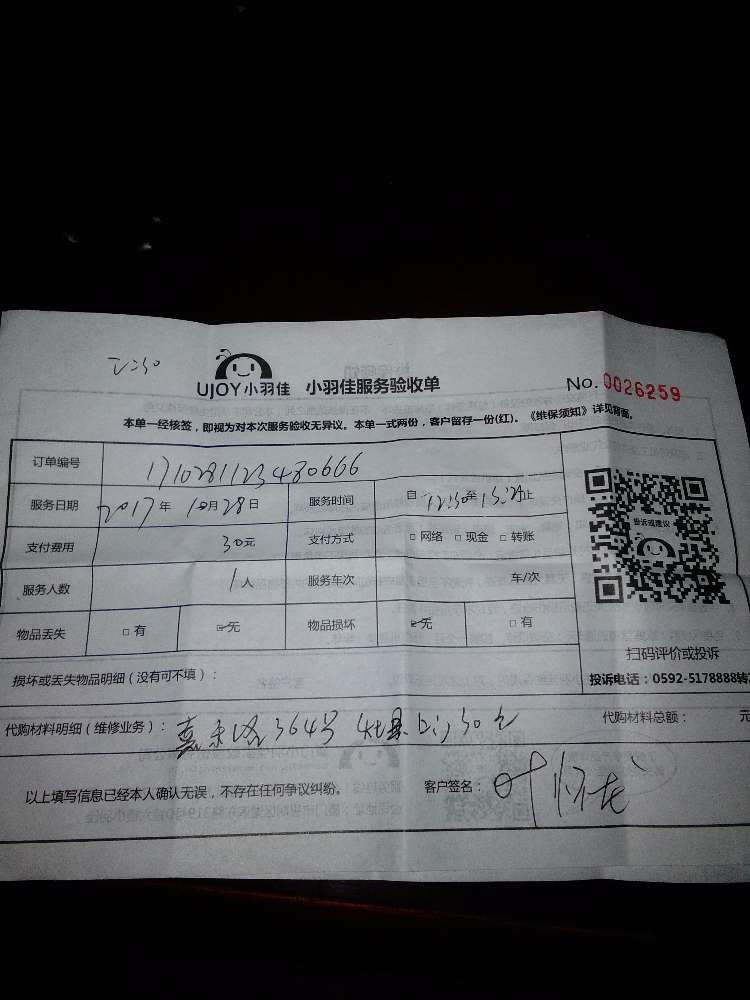 UJOY小羽佳 小羽佳服务验收单 No. 0026259
本单一经核签，即视为对本次服务验收无异议。本单一式两份，客户留存一份(红)。《维保须知》详见背面。
订单编号 1710281123480666
服务日期 2017年 10月28日 服务时间 自 12:30至 13:
止
支付费用 30元 支付方式 □ 网络 □ 现金 □ 转账
服务人数 1人 服务车次 车/次
物品丢失 □ 有 ☑ 无 物品损坏 ☑ 无 □ 有
投诉或建议
扫码评价或投诉
投诉电话：0592-5178888转
损坏或丢失物品明细（没有可不填）：
代购材料明细（维修业务）： 364号 30元 代购材料总额： 元
以上填写信息已经本人确认无误，不存在任何争议纠纷。 客户签名： 叶怀龙